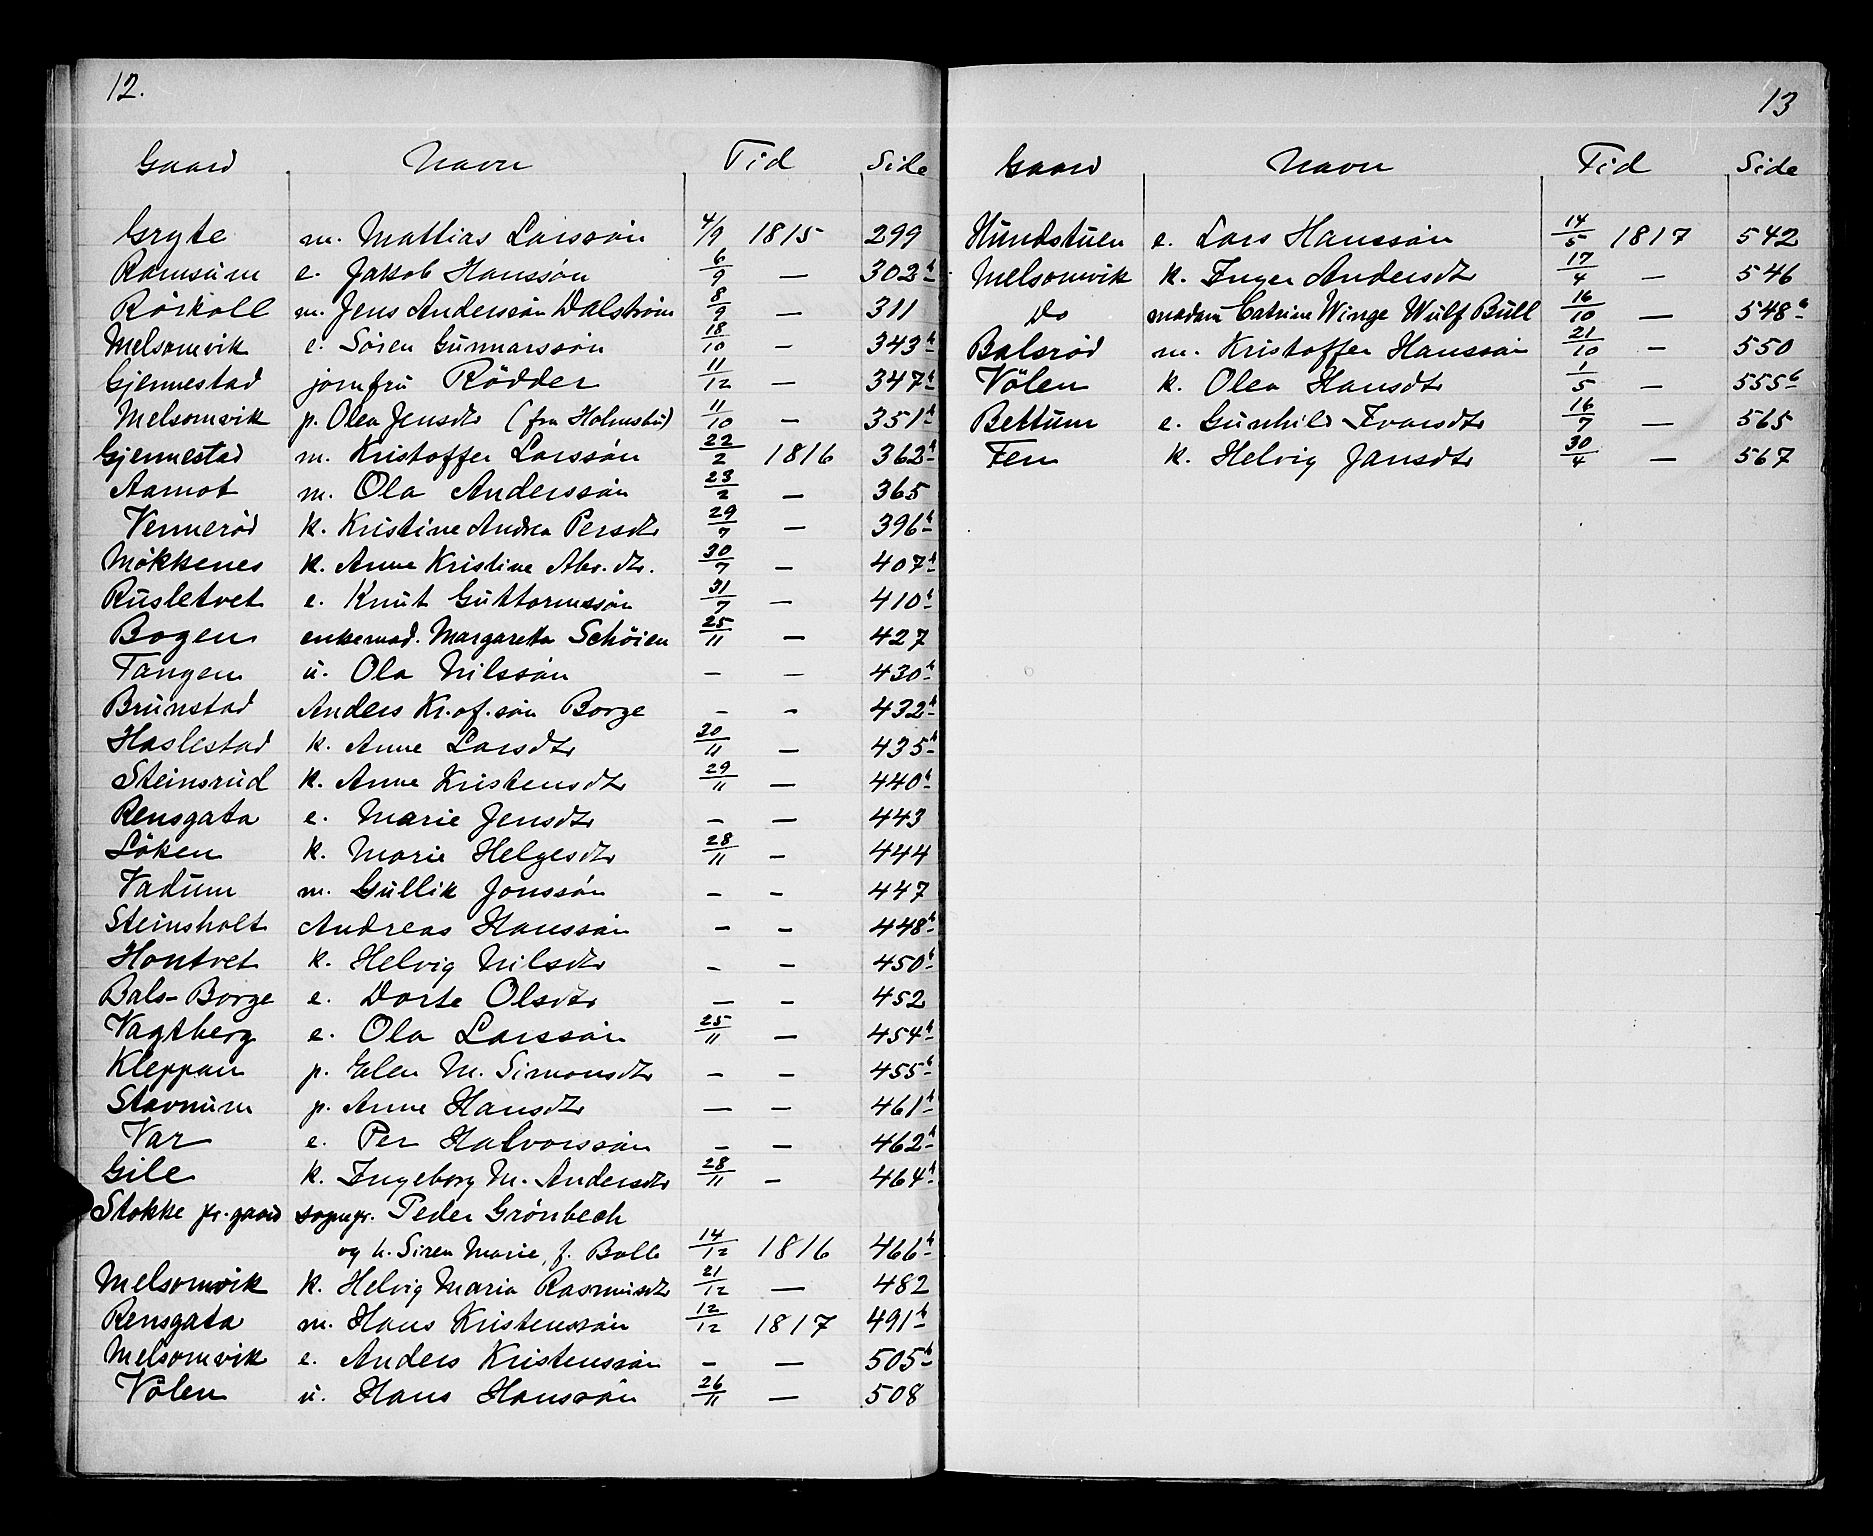 12.
Gaard Navn Tid Side
Gryte m. Mattias Larssön 4/9 1815 299
Ramsum e. Jakob Hanssön 6/9 — 302b
Röskoll m. Jens Anderssön Dalström 8/9 — 311
Melsomvik e. Sören Gunnarssön 18/10 — 343b
Gjennestad jomfru Rödder 11/12 — 347b
Melsomvik p. Olea Jensdtr (fra Holmsbu) 11/10 — 351b
Gjennestad m. Kristoffer Larssön 22/2 1816 362b
Aamot m. Ola Anderssön 23/2 — 365
Vennerød k. Kristine Andrea Persdtr 29/7 — 396b
Mökkenes k. Anne Kristine Abr.dtr. 30/7 — 407b
Rusletvet e. Knut Guttormssön 31/7 — 410b
Bogen enkemad. Margareta Schöien 25/11 — 427
Tangen u. Ola Nilssön — — 430b
Brunstad Anders Kr.of.søn Borge — — 432b
Haslestad k. Anne Larsdtr 30/11 — 435b
Steinsrud k. Anne Kristensdtr 29/11 — 440b
Rensgata e. Marie Jensdtr — — 443
Löken k. Marie Helgesdtr 28/11 — 444
Vadum m. Gullik Jonssön — — 447
Steinsholt Andreas Hanssön — — 448b
Hontvet k. Helvig Nilsdtr — — 450b
Bals-Borge e. Dorte Olsdtr — — 452
Vagtberg e. Ola Larssön 25/11 — 454b
Kleppan p. Elen M. Simonsdtr — — 455b
Stavnum p. Anne Hansdtr — — 461b
Var e. Per Halvorssön — — 462b
Gile k. Ingeborg M. Andersdtr 28/11 — 464b
Stokke pr.gaard sognepr. Peder Grönbech
og h. Siren Marie, f. Bolle 14/12 1816 466b
Melsomvik k. Helvig Maria Rasmusdtr 21/12 — 482
Rensgata m. Hans Kristenssön 12/12 1817 491b
Melsomvik e. Anders Kristenssön — — 505b
Völen u. Hans Hanssön 26/11 — 508
13
Gaard Navn Tid Side
Hundstuen e. Lars Hanssön 14/5 1817 542
Melsomvik k. Inger Andersdtr 17/4 — 546
Do madam Catrine Winge Wulf Bull 16/10 — 548b
Balsrød m. Kristoffer Hanssön 21/10 — 550
Völen k. Olea Hansdtr 1/5 — 555b
Bettum e. Gunhild Ivarsdtr 16/7 — 565
Fen k. Helvig Jansdtr 30/4 — 567